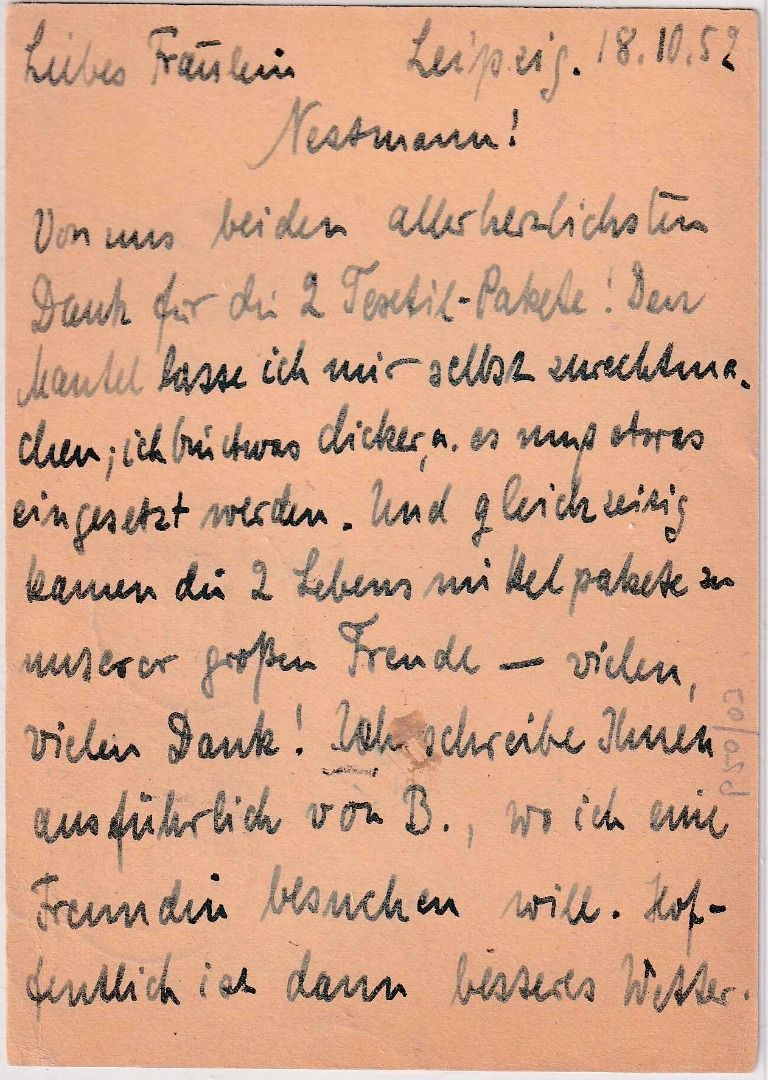 Liebes Fräulein Leipzig. 18.10.52
Nestmann!
Von uns beiden allerherzlichsten
Dank für die 2 Textil-Pakete! Den
Mantel lasse ich mir selbst zurechtma-
chen; ich bin etwas dicker, u. es muß etwas
eingesetzt werden. Und gleichzeitig
kamen die 2 Lebensmittelpakete zu
unserer großen Freude — vielen,
vielen Dank! Ich schreibe Ihnen
ausführlich von B., wo ich eine
Freundin besuchen will. Hof-
fentlich ist dann besseres Wetter.